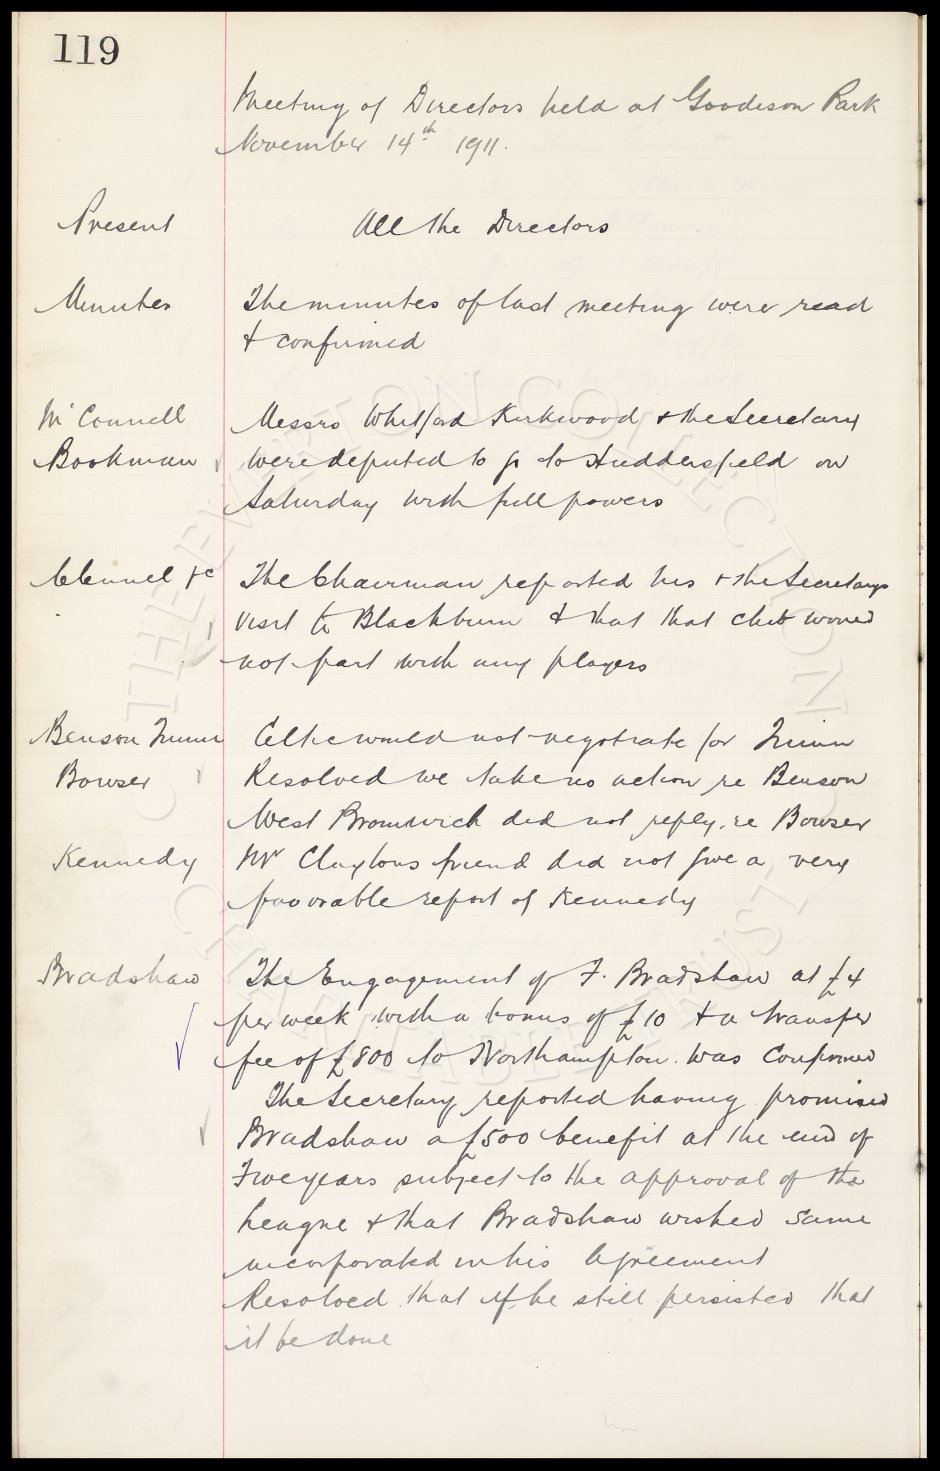 119
Meeting of Directors held at Goodison Park
November 14th 1911.
Present All the Directors
Minutes The minutes of last meeting were read
& confirmed
McConnell Messrs Whitford Kirkwood & the Secretary
Bookman were deputed to go to Huddersfield on
Saturday with full powers
Clennel &c The Chairman reported his & the Secretarys
visit to Blackburn & that that club would
not part with any players
Benson Quinn Celtic would not negotiate for Quinn
Bowser Resolved we take no action re Benson
West Bromwich did not reply. re Bowser
Kennedy Mr Claytons friend did not give a very
favorable report of Kennedy
Bradshaw The Engagement of F. Bradshaw at £4
per week with a bonus of £10 & a transfer
fee of £800 to Northampton was confirmed
The Secretary reported having promised
Bradshaw a £500 benefit at the end of
Five years subject to the approval of the
League & that Bradshaw wished same
incorporated in his Agreement
Resolved that if he still persisted that
it be done
THE EVERTON COLLECTION
CHARITABLE TRUST